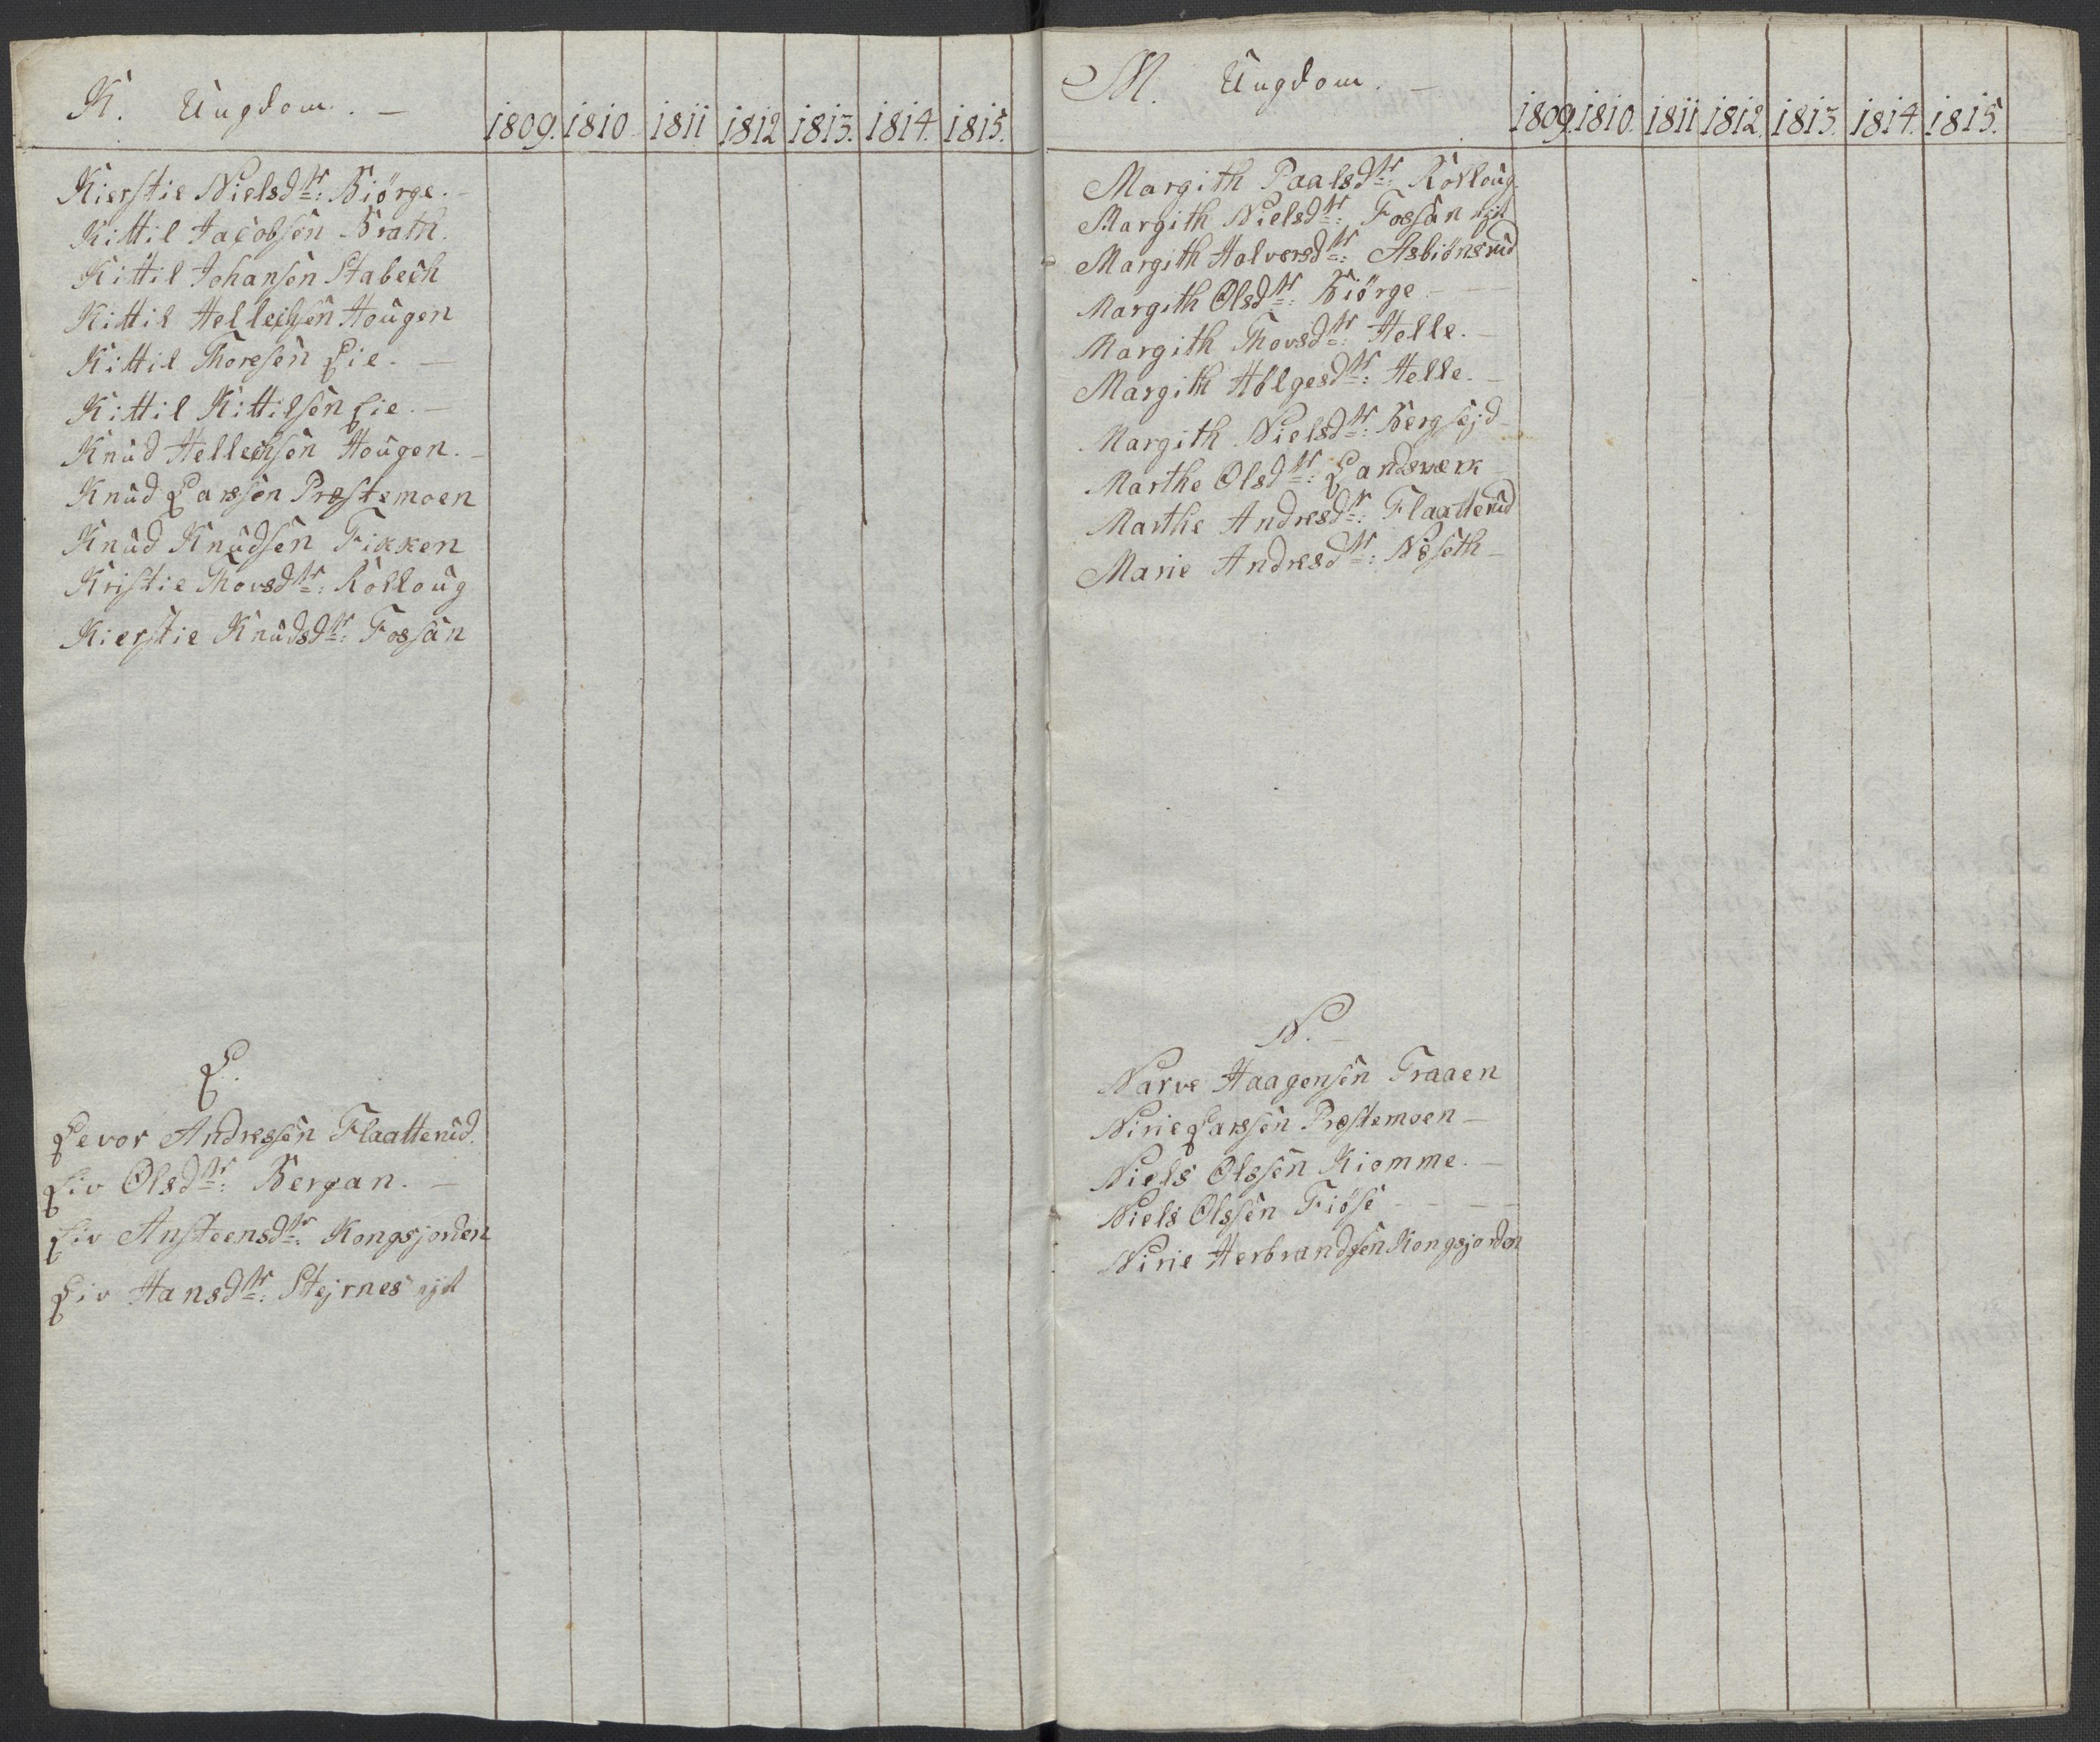 K. Ungdom. —
1809. 1810 1811 1812 1813. 1814. 1815.
Kierstie Nielsdtr: Biörge. —
Kittil Jacobsen Brath.
Kittil Johansen Stabech
Kittil Hellechsen Hougen
Kittil Thoresen Lie. —
Kittil Kittilsen Lie. —
Knud Hellechsen Hougen. —
Knud Larssen Præstemoen
Knud Knudsen Fikken
Kristie Thovsdtr: Rolloug
Kierstie Knudsdtr: Fossan
L.
Levor Andressen Flaatterud.
Liv Olsdtr: Bergan. —
Liv Ansteensdtr: Kongsjorden
Liv Hansdtr: Stejrnes ejd
M. Ungdom. —
1809. 1810. 1811 1812. 1813. 1814. 1815.
Margith Paalsdtr: Rolloug.
Margith Nielsdtr: Fossan ejd
Margith Halvorsdtr: Asbiönsrud
Margith Olsdtr: Biörge — —
Margith Thovsdtr: Helle. —
Margith Hölgesdtr: Helle. —
Margith Nielsdtr: Bergsejd —
Marthe Olsdtr: Landsværk
Marthe Andresdtr: Flaatterud
Marie Andresdtr: Næseth —
N. —
Narve Haagensen Traaen
Nirie Larssen Præstemoen —
Niels Olssen Kiomme. —
Niels Olssen Fiöse — — — —
Nirie Herbrandsen Kongsjorden